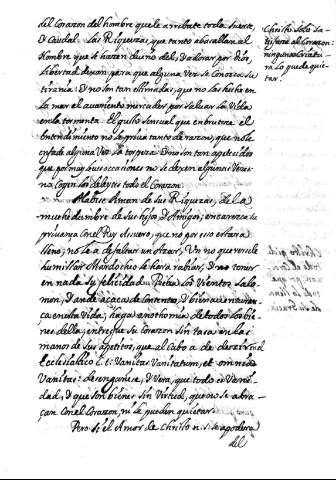 del Corazon del hombre que le arrebate toda Suerte
O Caudal. Las Riquezas que tanto abasallan al
Hombre que se hazen dueño del, D adorar por Dios,
libertad dexan para que alguna Vez se Conozca su
tirania: D no son tan estimadas, que no las heche en
la mar el avariento mercader por salvar la Vida
en la tormenta. El gusto sensual que enbrutece el
Entendimiento no se priva tanto de razon, que no le
enfade alguna Vez la torpeza D no son tan apetecidos
que por muy buenas ocasiones no se dexen algunas Vezes
en todo el Corazon.
Hable Aman de sus Riquezas, de la
muchedumbre de sus hijos D Amigos; encarezca su
privanza Con el Rey Asuero, que no por eso estara
lleno; no le a de faltar un Azar, Un no querersele
humillar Mardocheo le hara rabiar, D no tener
en nada su felicidad. Rebuelva los Vientos Salo-
mon, D ande a caça de Contento, D bienaventuran-
ça en esta Vida; haga anothomia de todos los bie-
nes della; entregue su Corazon sin tasa en las
manos de sus apetitos, que al Cabo a de dezir en el
Ecclesiastico c. 1: Vanitas Vanitatum, et omnia
Vanitas: desengañese, D Vera, que todo es Vani-
dad, D que son bienes sin Virtud, que no se abra-
çan Con el Corazon, ni le pueden quietar.
Pero si el Amor de Christo n. s. se apodera
del
Christo Solo sa-
tisface al Corazon:
ninguna Criatu-
ra lo puede quie-
tar.